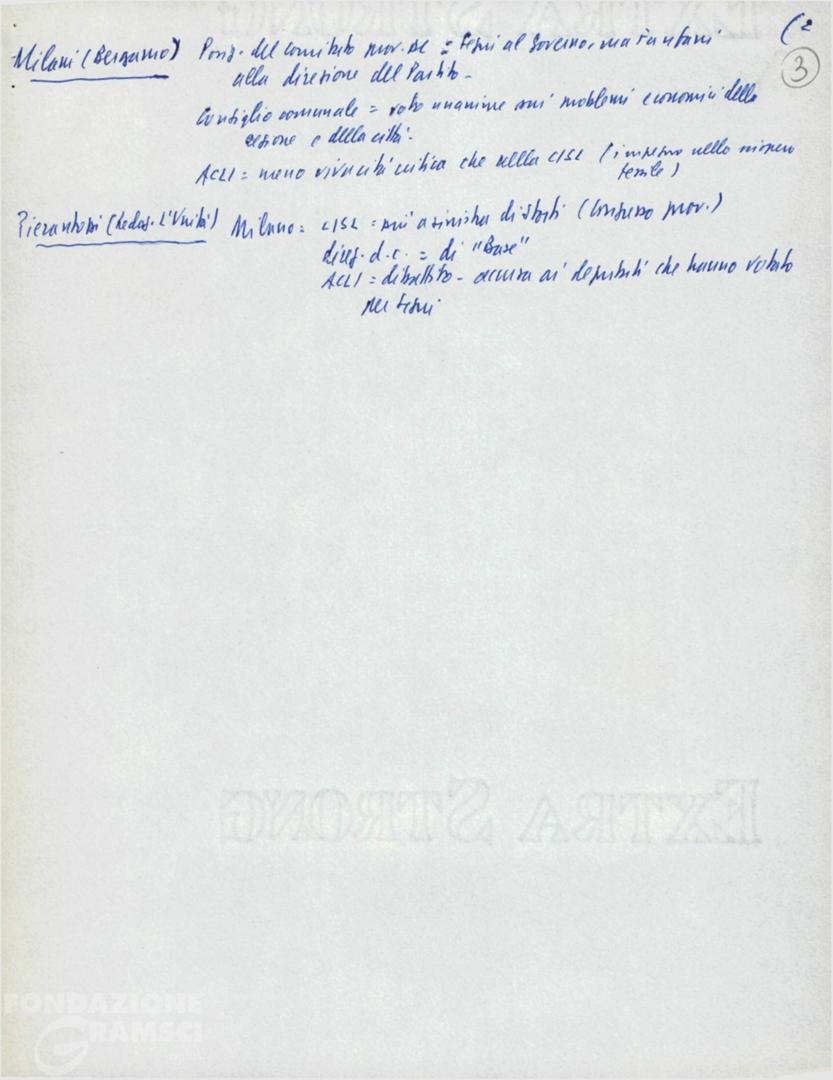 (2
3
Milani (Bergamo) Posiz. del comitato prov. DC = Segni al Governo, ma Fanfani
alla direzione del Partito -
Consiglio comunale = voto unanime sui problemi economici della
regione e della città.
ACLI = meno vivacità critica che nella CISL (impegno nello
tessile)
Pierantozzi (Redaz. L'Unità) Milano = CISL = più a sinistra di Storti (Congresso prov.)
direz. d.c. = di "Base"
ACLI = dibattito - accusa ai deputati che hanno votato
per Segni
EXTRA STRONG
EXTRA STRONG
FONDAZIONE
GRAMSCI